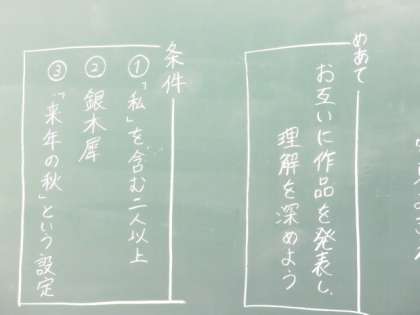 めあて
お互いに作品を発表し、
理解を深めよう
条件
①「私」を含む二人以上
②銀木犀
③「来年の秋」という設定